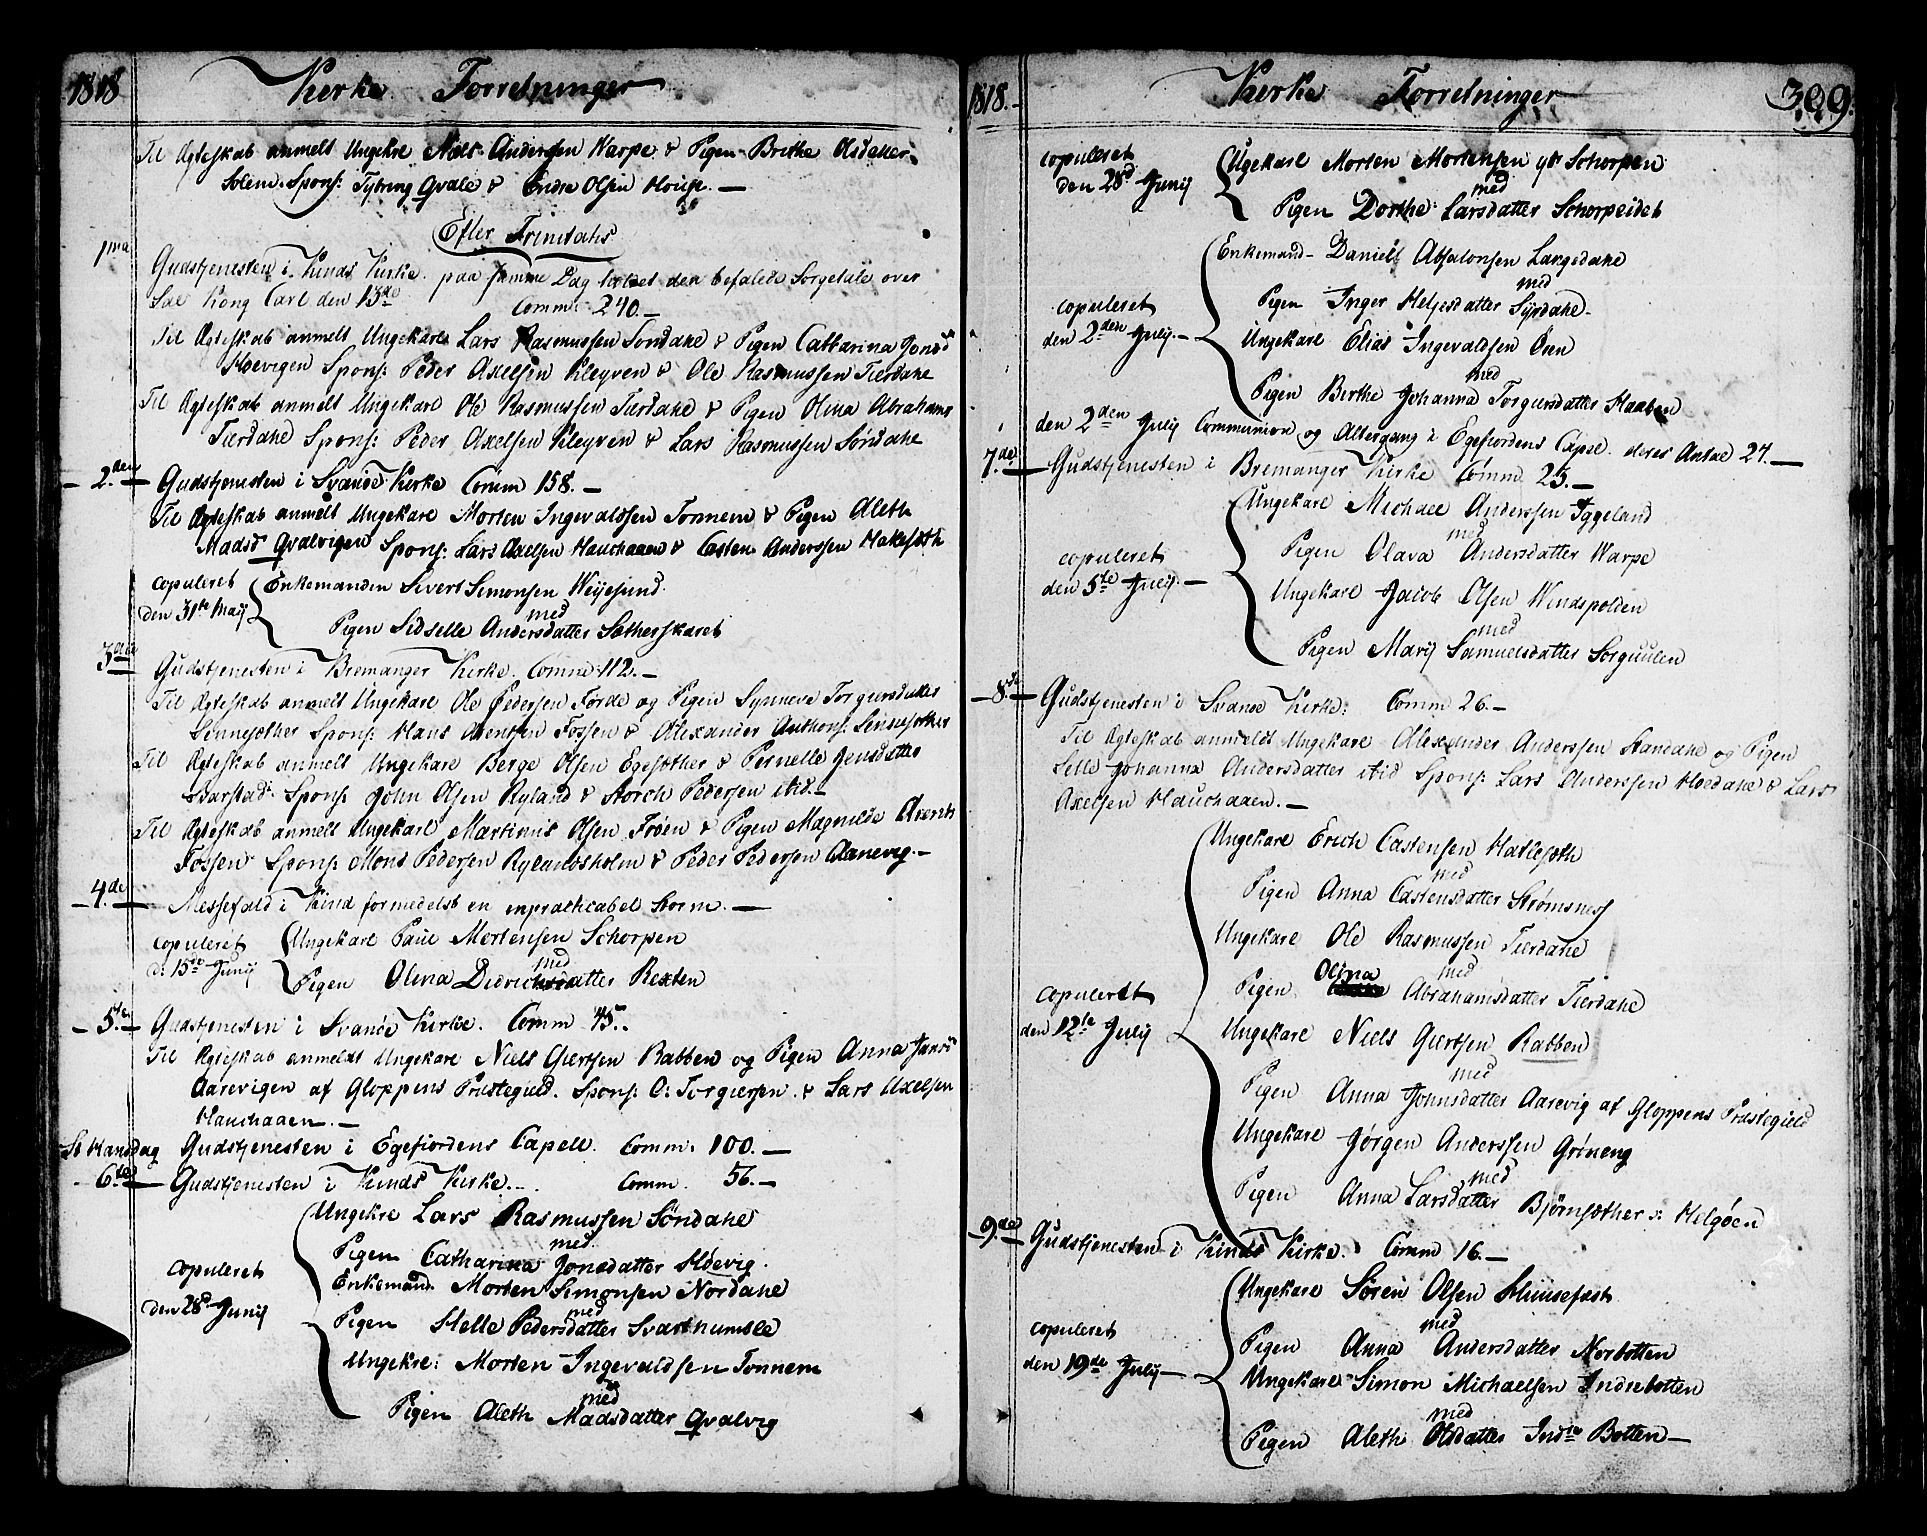 1818 Kirke Forretninger
Til Ægteskab anmelt Ungkre Niels Anderssen Warpe & Pigen Brithe Olsdatter
Solem. Spons: Tybring Qvale & Endre Olsen Houge. —
Efter Trinitatis
1ma Gudstjenesten i Kinds Kirke. paa samme Dag holdet den befalede Sørgetale over
Sal Kong Carl den 13de Comm: 240. —
Til Ægteskab anmelt Ungekarl Lars Rasmussen Sørdahl & Pigen Catharina Jonsd
Høevigen Spons: Peder Axelsen Kleyven & Ole Rasmussen Tierdahl
Til Ægteskab anmelt Ungekarl Ole Rasmussen Tierdahl & Pigen Olina Abrahams
Tierdahl Spons: Peder Axelsen Kleyven & Lars Rasmussen Sørdahl
2.den Gudstjenesten i Svanøe Kirke Comm 158. —
Til Ægteskab anmelt Ungekarl Morten Ingevaldsen Tonnem & Pigen Aleth
Madsd Qvalvigen Spons: Lars Axelsen Hauchaaen & Casten Anderssen Hatlesæth
copuleret Enkemanden Sivert Simonsen Weyesund
den 31te Maij med
Pigen Sidselle Andersdatter Sætherskaret
3die Gudstjenesten i Bremanger Kirke. Comm: 112. —
Til Ægteskab anmelt Ungekarl Ole Pedersen Førde og Pigen Synneve Torgiersdatter
Sennesæther Spons: Hans Arentsen Fossen & Alexander Anthons: Sennesæther
Til Ægteskab anmelt Ungekarl Berge Olsen Egesæther & Pernelle Jensdatter
Svarstad. Spons: John Olsen Ryland & Storch Pedersen itid. —
Til Ægteskab anmelt Ungekarl Martinus Olsen Frøen & Pigen Magnilde Arents
Fossen Spons: Mons Pedersen Rylandsholm & Peder Pedersen Aanevig. —
4.de Messefald i Kind formedelst en inpracticabel Storm. —
copuleret Ungekarl Paul Mortensen Schorpen
d: 15de Junij med
Pigen Olina Didrichsdatter Rexten
5.te Gudstjenesten i Svanøe Kirke. Comm 45.
Til Ægteskab anmeldt Ungekarl Niels Giertsen Rabben og Pigen Anna Jansd
Aarevigen af Gloppens Præstegield. Spons: O: Torgiersen & Lars Axelsen
Hauchaaen. —
St Hansdag Gudstjenesten i Egefiordens Capell. Comm: 100. —
6.te Gudstjenesten i Kinds Kirke. — Comm. 56. —
Ungekre Lars Rasmussen Sørdahl
med
Pigen Catharina Jonsdatter Høevig.
copuleret Enkemand. Morten Simonsen Nordahl
den 28de Junij med
Pigen Helle Pedersdatter Svarthumle
Ungekre: Morten Ingevaldsen Tonnem
med
Pigen Aleth Madsdatter Qvalvig
1818. Kirke Forretninger 399.
copuleret Ungekarl Morten Mortensen ytr Schorpen
den 28d Junij med
Pigen Dorthe Larsdatter Schorpeidet
Enkemand Daniell Absalonsen Langedahl
med
copuleret Pigen Inger Heljesdatter Syrdahl
den 2den Julij. Ungekarl Elias Ingevaldsen Øen
med
Pigen Berthe Johanna Torgiersdatter Haaben
den 2den Julij Communion og Altergang i Egefiordens Capel. deres Antal 27. —
7.de Gudstjenesten i Bremanger Kirke Comm. 25. —
Ungekarl Michael Anderssen Iggeland
med
copuleret Pigen Olava Andersdatter Warpe
den 5te Julij. Ungekarl Jacob Olsen Windspolden
med
Pigen Marij Samuelsdatter Sorguulen
8.de Gudstjenesten i Svanøe Kirke: Comm 26. —
Til Ægteskab anmeldt Ungekarl Alexander Anderssen Standahl og Pigen
Sille Johanna Andersdatter itid Spons: Lars Anderssen Høedahl & Lars
Axelsen Hauchaaen. —
Ungekarl Erich Castensen Hatlesæth
med
Pigen Anna Castensdatter Strømsness
Ungekarl Ole Rasmussen Tierdahl
Olina med
Pigen Abrahamsdatter Tierdahl
copuleret
den 12te Julij Ungekarl Niels Giertsen Rabben
med
Pigen Anna Johnsdatter Aarevig af Gloppens Præstegield
Ungekarl Jørgen Anderssen Grøneng
med
Pigen Anna Larsdatter Bjørnsæther v: Helgøen
9.de Gudstjenesten i Kinds Kirke. Comm 16. —
Ungekarl Søren Olsen Huusefast
med
copuleret Pigen Anna Andersdatter Norbotten
den 19de Julij Ungekarl Simon Michaelsen Indrebotten
med
Pigen Aleth Olsdatter Indre Botten —